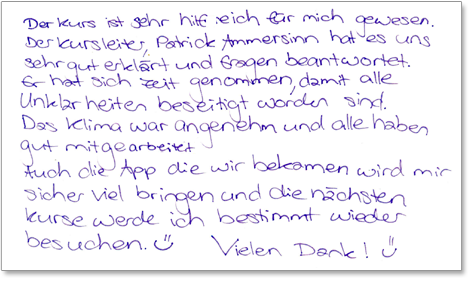 Der Kurs ist sehr hilfreich für mich gewesen.
Der Kursleiter, Patrick Ammersinn hat es uns
sehr gut erklärt und Fragen beantwortet.
Er hat sich Zeit genommen, damit alle
Unklarheiten beseitigt worden sind.
Das Klima war angenehm und alle haben
gut mitgearbeitet
Auch die App die wir bekamen wird mir
sicher viel bringen und die nächsten
Kurse werde ich bestimmt wieder
besuchen. Vielen Dank!